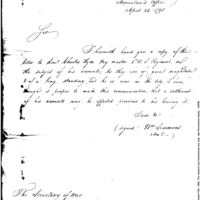 Accountant's Office
April 24th 1798
Sir
I herewith hand you a copy of the
letter to Lieut Charles Hyde Pay master 1st U.S. Regiment, on
the subject of his accounts, As they are of great magnitude
& of long standing, and he is now in the city, I have
thought it proper to make this communication that a settlement
of his accounts may be effected previous to his leaving it.
I am &c
(signed) Wm Simmons
The Secretary of War